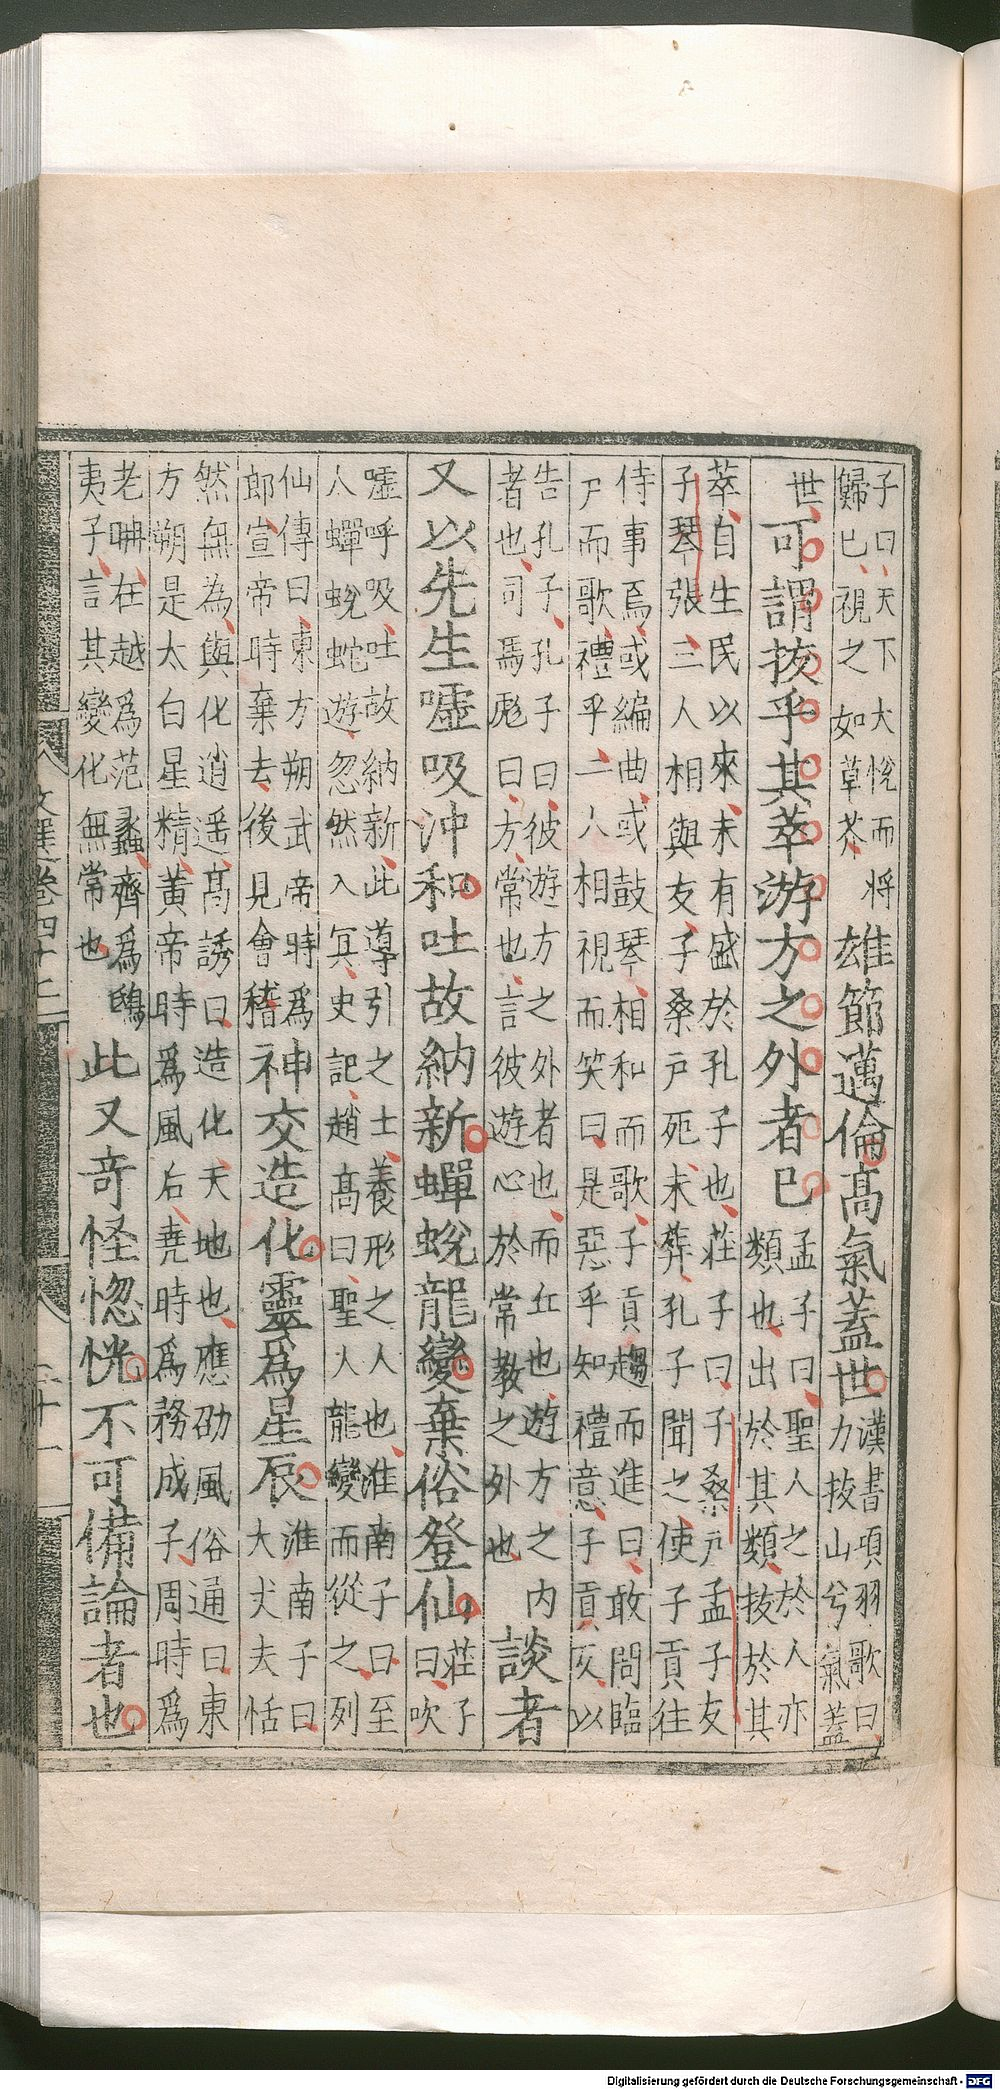 子曰天下大悅而將
歸已視之如草芥
雄節邁倫高氣蓋世
漢書項羽歌曰
力拔山兮氣蓋
世
可謂拔乎其萃游方之外者已
孟子曰聖人之於人亦
類也出於其類拔於其
萃自生民以來未有盛於孔子也莊子曰子桑戶孟子友
子琴張三人相與友子桑戶死未葬孔子聞之使子貢往
侍事焉或編曲或鼓琴相和而歌子貢趨而進曰敢問臨
尸而歌禮乎二人相視而笑曰是惡乎知禮意子貢反以
告孔子孔子曰彼遊方之外者也而丘也遊方之內
者也司馬彪曰方常也言彼遊心於常教之外也
談者
又以先生噓吸沖和吐故納新蟬蛻龍變棄俗登仙
莊子
曰吹
噓呼吸吐故納新此導引之士養形之人也淮南子曰至
人蟬蛻蛇遊忽然入冥史記趙高曰聖人龍變而從之列
仙傳曰東方朔武帝時為
郎宣帝時棄去後見會稽
神交造化靈爲星辰
淮南子曰
大丈夫恬
然無為與化逍遙高誘曰造化天地也應劭風俗通曰東
方朔是太白星精黃帝時爲風后堯時爲務成子周時爲
老聃在越爲范蠡齊爲鴟
夷子言其變化無常也
此又奇怪惚恍不可備論者也
文選卷四十
Digitalisierung gefördert durch die Deutsche Forschungsgemeinschaft - DFG